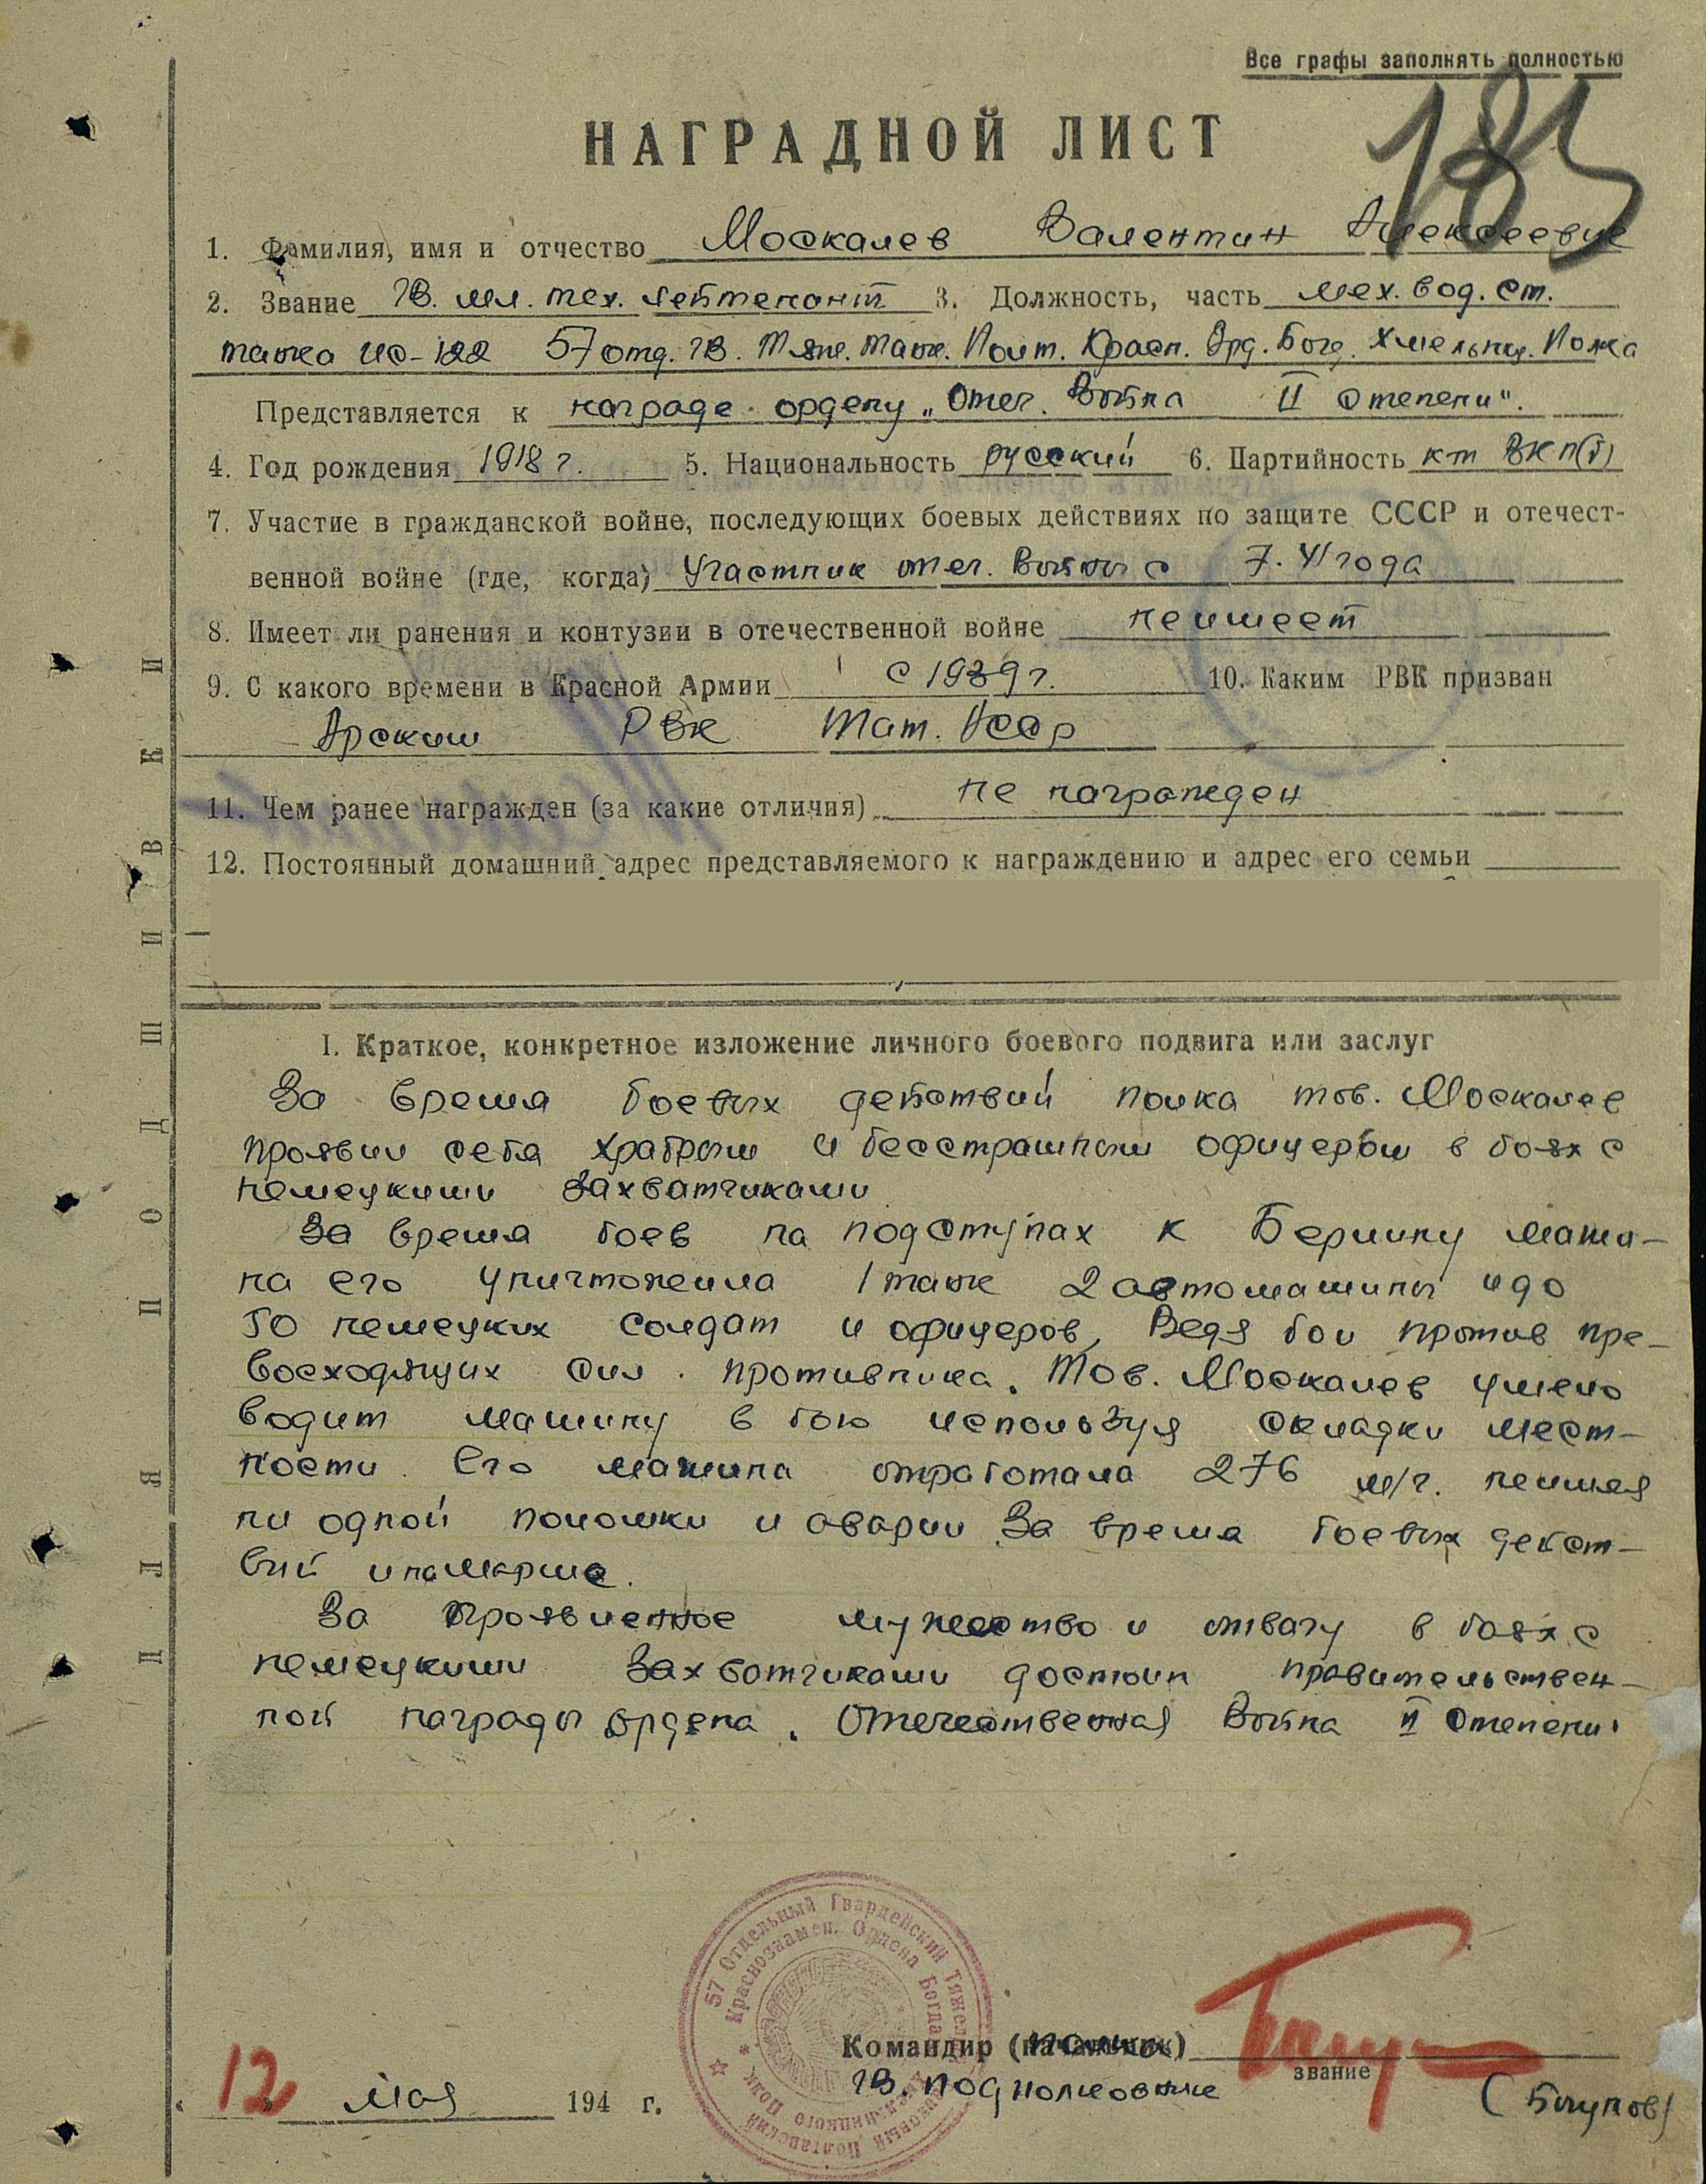 Все графы заполнять полностью
185
НАГРАДНОЙ ЛИСТ
1. Фамилия, имя и отчество Москалев Валентин Алексеевич
2. Звание Гв. мл. тех. лейтенант 3. Должность, часть мех. вод. ст.
танка ИС-122 57 отд. Гв. Тяж. Танк. Полт. Красн. Орд. Богд. Хмельниц. Полка
Представляется к награде ордену „Отеч. Война II степени".
4. Год рождения 1918 г. 5. Национальность русский 6. Партийность кт ВКП(б)
7. Участие в гражданской войне, последующих боевых действиях по защите СССР и отечест-
венной войне (где, когда) Участник отеч. войны с 7. 41 года
8. Имеет ли ранения и контузии в отечественной войне не имеет
9. С какого времени в Красной Армии с 1939 г. 10. Каким РВК призван
Арским РВК Тат. Асср
11. Чем ранее награжден (за какие отличия) не награжден
12. Постоянный домашний адрес представляемого к награждению и адрес его семьи
I. Краткое, конкретное изложение личного боевого подвига или заслуг
За время боевых действий полка тов. Москалев
проявил себя храбрым и бесстрашным офицером в боях с
немецкими захватчиками
За время боев на подступах к Берлину маши-
на его уничтожила 1 танк 2 автомашины и до
50 немецких солдат и офицеров, Ведя бои против пре-
восходящих сил противника. Тов. Москалев умело
водит машину в бою используя складки мест-
ности. Его машина отработала 276 м/ч. не имея
ни одной поломки и аварии За время боевых дейст-
вий и на марше.
За проявленное мужество и отвагу в боях с
немецкими захватчиками достоин правительствен-
ной награды ордена „Отечественная Война II степени"
57 Отдельный Гвардейский Тяжелый Танковый Полтавский
Краснознамен. Ордена Богдана Хмельницкого Полк
Командир (полка)
Гв. подполковник
звание
(Бл��унов)
"12" мая 194 г.
ДЛЯ ПОДШИВКИ